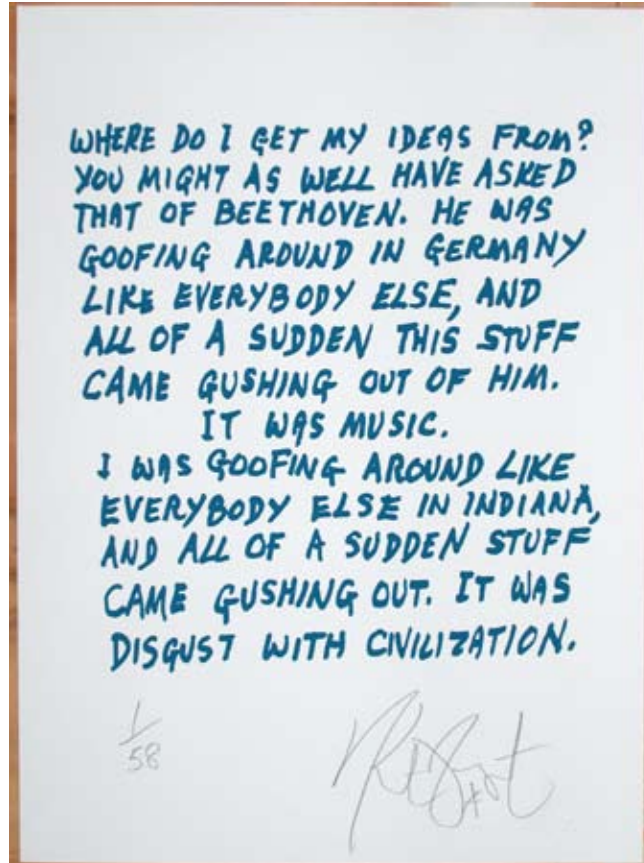 WHERE DO I GET MY IDEAS FROM?
YOU MIGHT AS WELL HAVE ASKED
THAT OF BEETHOVEN. HE WAS
GOOFING AROUND IN GERMANY
LIKE EVERYBODY ELSE, AND
ALL OF A SUDDEN THIS STUFF
CAME GUSHING OUT OF HIM.
IT WAS MUSIC.
I WAS GOOFING AROUND LIKE
EVERYBODY ELSE IN INDIANA,
AND ALL OF A SUDDEN STUFF
CAME GUSHING OUT. IT WAS
DISGUST WITH CIVILIZATION.
1/58